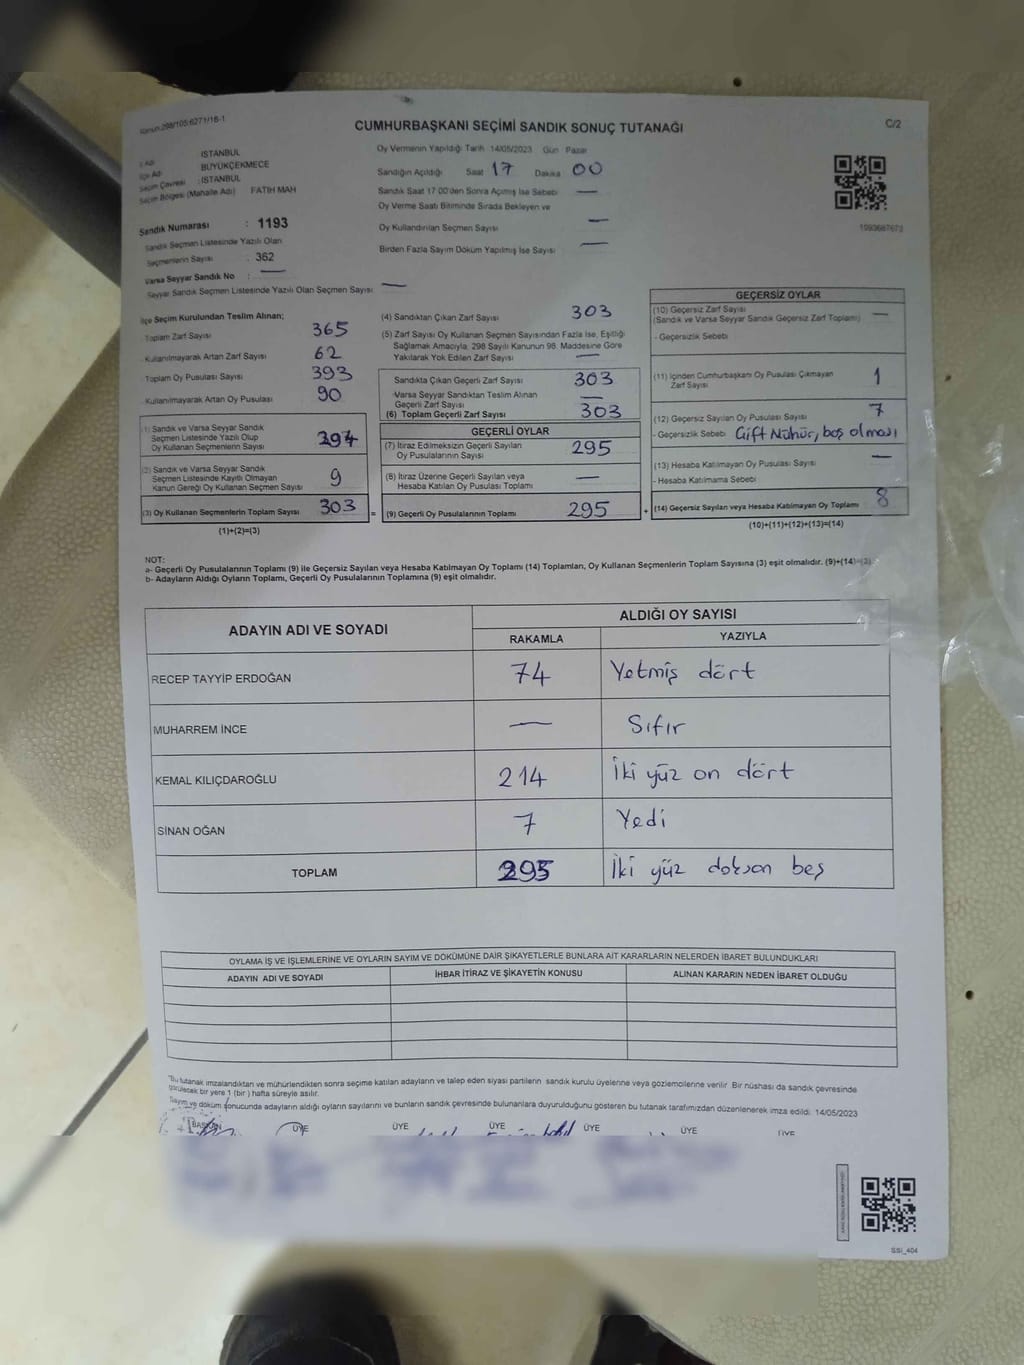 Kanun:298/105:6271/18-1
CUMHURBAŞKANI SEÇİMİ SANDIK SONUÇ TUTANAĞI
C/2
İli Adı İSTANBUL
İlçe Adı BÜYÜKÇEKMECE
Seçim Çevresi : İSTANBUL
Seçim Bölgesi (Mahalle Adı) FATİH MAH
Sandık Numarası : 1193
Sandık Seçmen Listesinde Yazılı Olan
Seçmenlerin Sayısı : 362
Varsa Seyyar Sandık No : —
Seyyar Sandık Seçmen Listesinde Yazılı Olan Seçmen Sayısı —
Oy Vermenin Yapıldığı Tarih 14/05/2023 Gün Pazar
Sandığın Açıldığı Saat 17 Dakika 00
Sandık Saat 17:00'den Sonra Açılmış İse Sebebi —
Oy Verme Saati Bitiminde Sırada Bekleyen ve
Oy Kullandırılan Seçmen Sayısı —
Birden Fazla Sayım Döküm Yapılmış İse Sayısı —
1093687673
İlçe Seçim Kurulundan Teslim Alınan;
Toplam Zarf Sayısı 365
Kullanılmayarak Artan Zarf Sayısı 62
Toplam Oy Pusulası Sayısı 393
Kullanılmayarak Artan Oy Pusulası 90
(1) Sandık ve Varsa Seyyar Sandık
Seçmen Listesinde Yazılı Olup
Oy Kullanan Seçmenlerin Sayısı
(2) Sandık ve Varsa Seyyar Sandık
Seçmen Listesinde Kayıtlı Olmayan
Kanun Gereği Oy Kullanan Seçmen Sayısı 9
(3) Oy Kullanan Seçmenlerin Toplam Sayısı 303
(1)+(2)=(3)
(4) Sandıktan Çıkan Zarf Sayısı 303
(5) Zarf Sayısı Oy Kullanan Seçmen Sayısından Fazla İse, Eşitliği
Sağlamak Amacıyla, 298 Sayılı Kanunun 98. Maddesine Göre
Yakılarak Yok Edilen Zarf Sayısı —
Sandıkta Çıkan Geçerli Zarf Sayısı 303
Varsa Seyyar Sandıktan Teslim Alınan
Geçerli Zarf Sayısı —
(6) Toplam Geçerli Zarf Sayısı 303
GEÇERLİ OYLAR
(7) İtiraz Edilmeksizin Geçerli Sayılan
Oy Pusulalarının Sayısı 295
(8) İtiraz Üzerine Geçerli Sayılan veya
Hesaba Katılan Oy Pusulası Toplamı —
= (9) Geçerli Oy Pusulalarının Toplamı 295
GEÇERSİZ OYLAR
(10) Geçersiz Zarf Sayısı —
(Sandık ve Varsa Seyyar Sandık Geçersiz Zarf Toplamı)
- Geçersizlik Sebebi
(11) İçinden Cumhurbaşkanı Oy Pusulası Çıkmayan
Zarf Sayısı 1
(12) Geçersiz Sayılan Oy Pusulası Sayısı 7
- Geçersizlik Sebebi Çift Mühür, boş olması
(13) Hesaba Katılmayan Oy Pusulası Sayısı —
- Hesaba Katılmama Sebebi
+ (14) Geçersiz Sayılan veya Hesaba Katılmayan Oy Toplamı 8
(10)+(11)+(12)+(13)=(14)
NOT:
a- Geçerli Oy Pusulalarının Toplamı (9) ile Geçersiz Sayılan veya Hesaba Katılmayan Oy Toplamı (14) Toplamları, Oy Kullanan Seçmenlerin Toplam Sayısına (3) eşit olmalıdır. (9)+(14)=(3)
b- Adayların Aldığı Oyların Toplamı, Geçerli Oy Pusulalarının Toplamına (9) eşit olmalıdır.
ADAYIN ADI VE SOYADI
ALDIĞI OY SAYISI
RAKAMLA YAZIYLA
RECEP TAYYİP ERDOĞAN 74 Yetmiş dört
MUHARREM İNCE — Sıfır
KEMAL KILIÇDAROĞLU 214 İki yüz on dört
SİNAN OĞAN 7 Yedi
TOPLAM 295 İki yüz doksan beş
OYLAMA İŞ VE İŞLEMLERİNE VE OYLARIN SAYIM VE DÖKÜMÜNE DAİR ŞİKAYETLERLE BUNLARA AİT KARARLARIN NELERDEN İBARET BULUNDUKLARI
ADAYIN ADI VE SOYADI İHBAR İTİRAZ VE ŞİKAYETİN KONUSU ALINAN KARARIN NEDEN İBARET OLDUĞU
"Bu tutanak imzalandıktan ve mühürlendikten sonra seçime katılan adayların ve talep eden siyasi partilerin sandık kurulu üyelerine veya gözlemcilerine verilir. Bir nüshası da sandık çevresinde
görülecek bir yere 1 (bir) hafta süreyle asılır.
Sayım ve döküm sonucunda adayların aldığı oyların sayılarını ve bunların sandık çevresinde bulunanlara duyurulduğunu gösteren bu tutanak tarafımızdan düzenlenerek imza edildi. 14/05/2023
BAŞKAN ÜYE ÜYE ÜYE ÜYE ÜYE ÜYE
SSİ_404